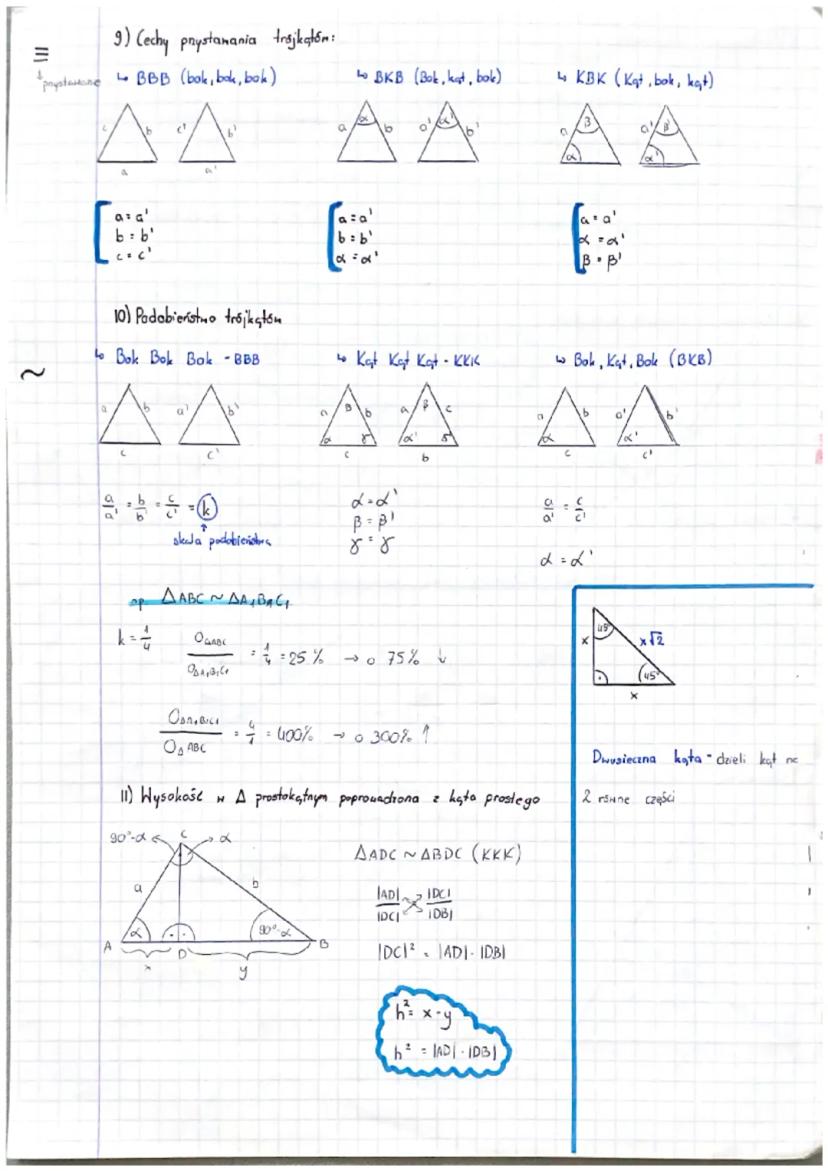 9) Cechy przystawania trójkątów:
≡
przystawanie
↳ BBB (bok, bok, bok)
↳ BKB (Bok, kąt, bok)
↳ KBK (Kąt, bok, kąt)
c b c' b'
a a'
a α b a' α' b'
a β a' β'
α α'
a = a'
b = b'
c = c'
a = a'
b = b'
α = α'
a = a'
α = α'
β = β'
10) Podobieństwo trójkątów
~
↳ Bok Bok Bok - BBB
↳ Kąt Kąt Kąt - KKK
↳ Bok, Kąt, Bok (BKB)
a b a' b'
c c'
a β b a β c
α γ α' γ
c b
a b a' b'
α α'
c c'
a/a' = b/b' = c/c' = k
skala podobieństwa
α = α'
β = β'
γ = γ
a/a' = c/c'
α = α'
np. ΔABC ~ ΔA₁B₁C₁
k = 1/4
O ΔABC / O ΔA₁B₁C₁ = 1/4 = 25% → o 75% ↓
O ΔA₁B₁C₁ / O Δ ABC = 4/1 = 400% → o 300% ↑
45°
x x√2
45°
x
Dwusieczna kąta - dzieli kąt na
2 równe części
11) Wysokość w Δ prostokątnym poprowadzona z kąta prostego
90°-α C α
a b
α 90°-α
A D B
x y
ΔADC ~ ΔBDC (KKK)
|AD|/|DC| |DC|/|DB|
|DC|² = |AD| · |DB|
h² = x · y
h² = |AD| · |DB|